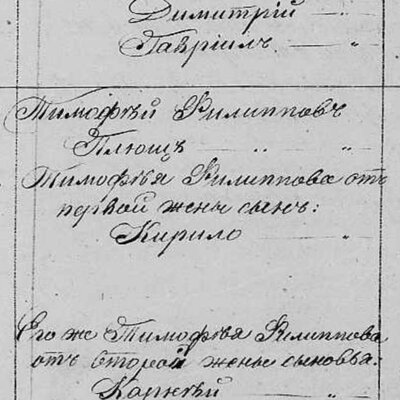 Димитрій — "
Гавріилъ. — "
Тимофѣй Филипповъ
Плющъ " "
Тимофѣя Филиппова отъ
первой жены сынъ:
Кирило — "
Его же Тимофѣя Филиппова
отъ второй жены сыновья:
Корнѣй — "